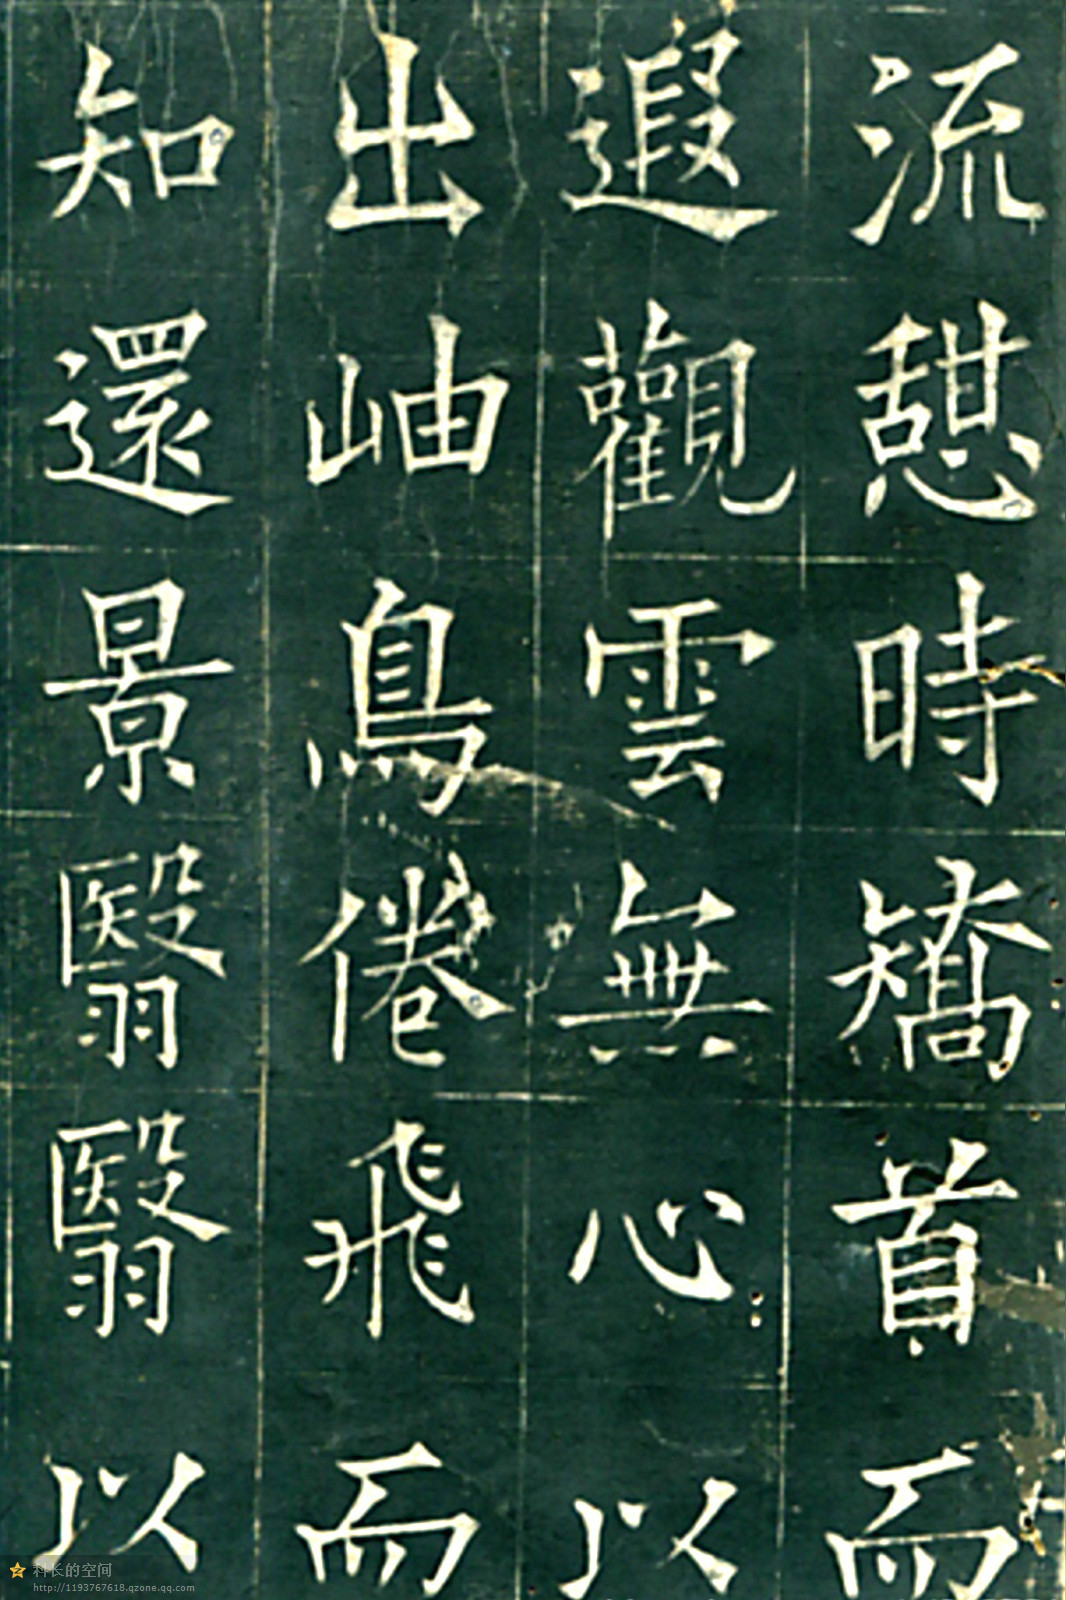 流憩時矯首而
遐觀雲無心以
出岫鳥倦飛而
知還景翳翳以
科长的空间
http://1193767618.qzone.qq.com